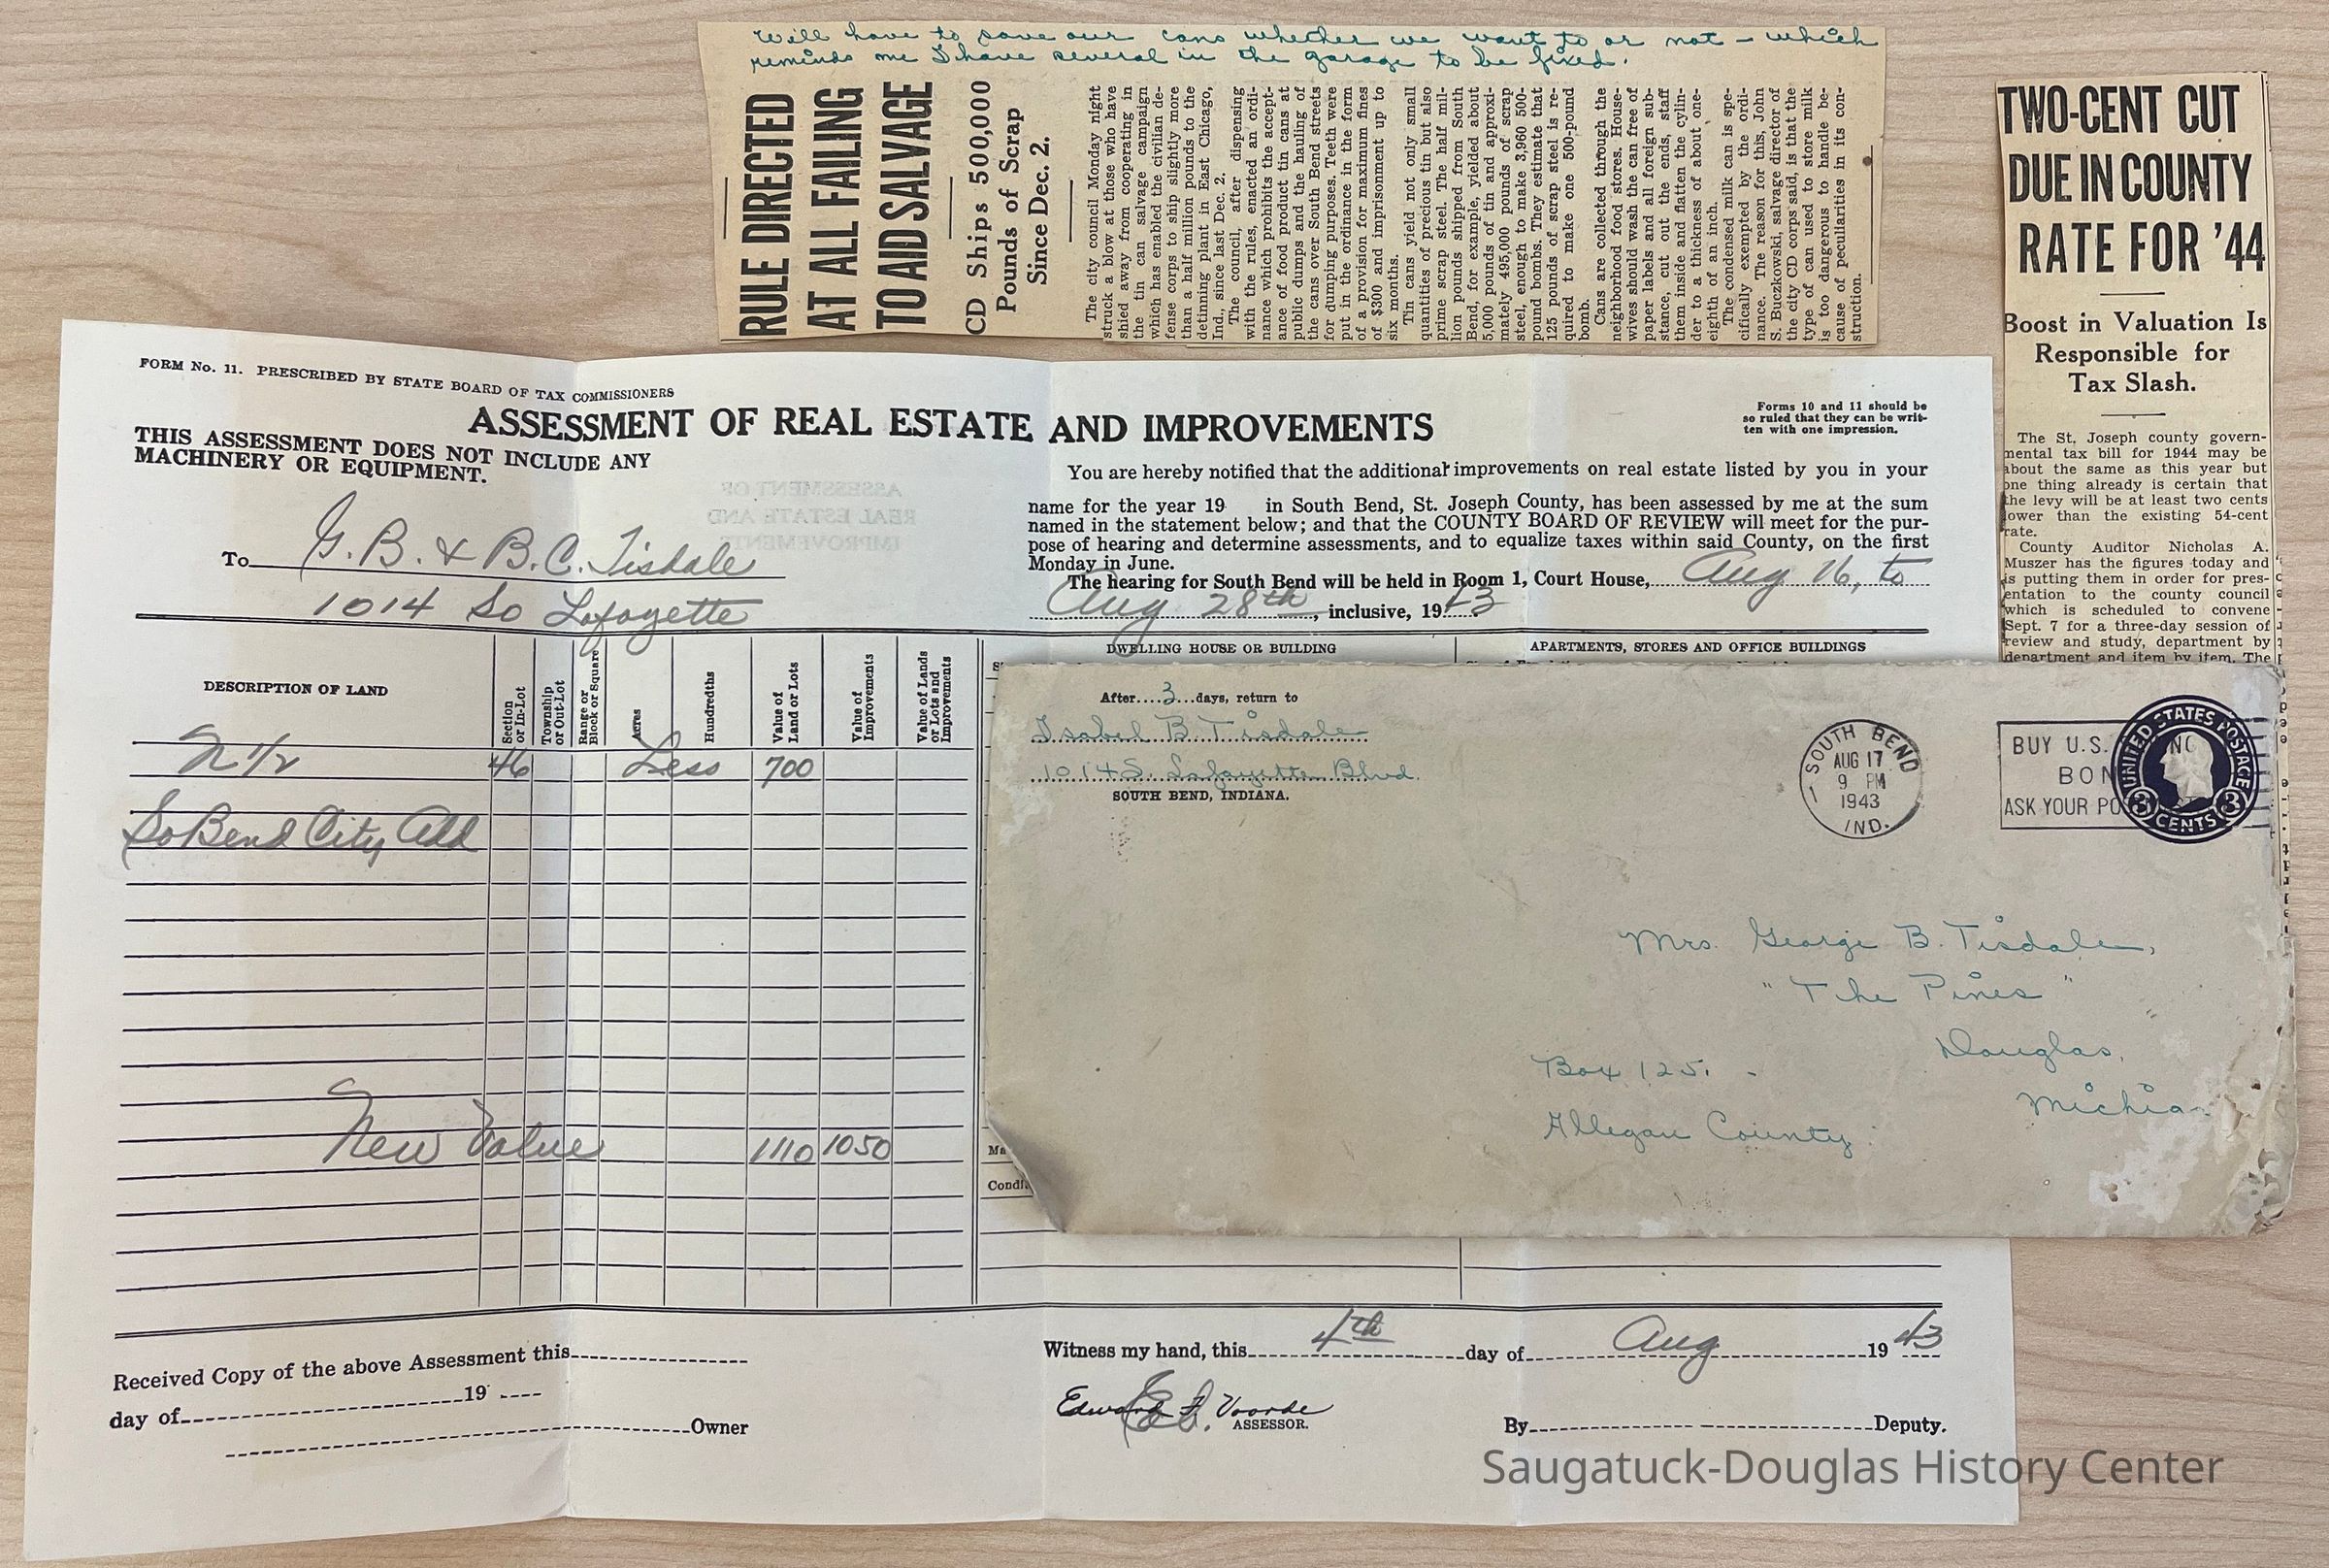 Will have to save our cans whether we want to or not – which
reminds me I have several in the garage to be fixed.
RULE DIRECTED
AT ALL FAILING
TO AID SALVAGE
CD Ships 500,000
Pounds of Scrap
Since Dec. 2.
The city council Monday night
struck a blow at those who have
shied away from cooperating in
the tin can salvage campaign
which has enabled the civilian de-
fense corps to ship slightly more
than a half million pounds to the
detinning plant in East Chicago,
Ind., since last Dec. 2.
The council, after dispensing
with the rules, enacted an ordi-
nance which prohibits the accept-
ance of food product tin cans at
public dumps and the hauling of
the cans over South Bend streets
for dumping purposes. Teeth were
put in the ordinance in the form
of a provision for maximum fines
of $300 and imprisonment up to
six months.
Tin cans yield not only small
quantities of precious tin but also
prime scrap steel. The half mil-
lion pounds shipped from South
Bend, for example, yielded about
5,000 pounds of tin and approxi-
mately 495,000 pounds of scrap
steel, enough to make 3,960 500-
pound bombs. They estimate that
125 pounds of scrap steel is re-
quired to make one 500-pound
bomb.
Cans are collected through the
neighborhood food stores. House-
wives should wash the can free of
paper labels and all foreign sub-
stance, cut out the ends, staff
them inside and flatten the cylin-
der to a thickness of about one-
eighth of an inch.
The condensed milk can is spe-
cifically exempted by the ordi-
nance. The reason for this, John
S. Buczkowski, salvage director of
the city CD corps said, is that the
type of can used to store milk
is too dangerous to handle be-
cause of peculiarities in its con-
struction.
TWO-CENT CUT
DUE IN COUNTY
RATE FOR '44
Boost in Valuation Is
Responsible for
Tax Slash.
The St. Joseph county govern-
mental tax bill for 1944 may be
about the same as this year but
one thing already is certain that
the levy will be at least two cents
lower than the existing 54-cent
rate.
County Auditor Nicholas A.
Muszer has the figures today and
is putting them in order for pres-
entation to the county council
which is scheduled to convene
Sept. 7 for a three-day session of
review and study, department by
department and item by item. The
FORM No. 11. PRESCRIBED BY STATE BOARD OF TAX COMMISSIONERS
ASSESSMENT OF REAL ESTATE AND IMPROVEMENTS
Forms 10 and 11 should be
so ruled that they can be writ-
ten with one impression.
THIS ASSESSMENT DOES NOT INCLUDE ANY
MACHINERY OR EQUIPMENT.
ASSESSMENT OF
REAL ESTATE AND
IMPROVEMENTS
To G. B. & B. C. Tisdale
1014 So Lafayette
You are hereby notified that the additional improvements on real estate listed by you in your
name for the year 19 in South Bend, St. Joseph County, has been assessed by me at the sum
named in the statement below; and that the COUNTY BOARD OF REVIEW will meet for the pur-
pose of hearing and determine assessments, and to equalize taxes within said County, on the first
Monday in June.
The hearing for South Bend will be held in Room 1, Court House, Aug 16, to
Aug 28th, inclusive, 1943
DESCRIPTION OF LAND
Section
or In-Lot
Township
or Out-Lot
Range or
Block or Square
Acres
Hundredths
Value of
Land or Lots
Value of
Improvements
Value of Lands
or Lots and
Improvements
DWELLING HOUSE OR BUILDING
APARTMENTS, STORES AND OFFICE BUILDINGS
N 1/2 46 Less 700
So Bend City Add
New Value 1110 1050
Ma
Condi
After 3 days, return to
Isabel B. Tisdale
1014 S. Lafayette Blvd.
SOUTH BEND, INDIANA.
SOUTH BEND
1
AUG 17
9 PM
1943
IND.
BUY U.S.
BON
ASK YOUR PO
UNITED STATES POSTAGE
3 CENTS 3
Mrs. George B. Tisdale,
"The Pines"
Douglas,
Michig
Box 125. -
Allegan County.
Received Copy of the above Assessment this
day of 19
Owner
Witness my hand, this 4th day of Aug 1943
Edward F. Voorde
ASSESSOR.
By Deputy.
Saugatuck-Douglas History Center